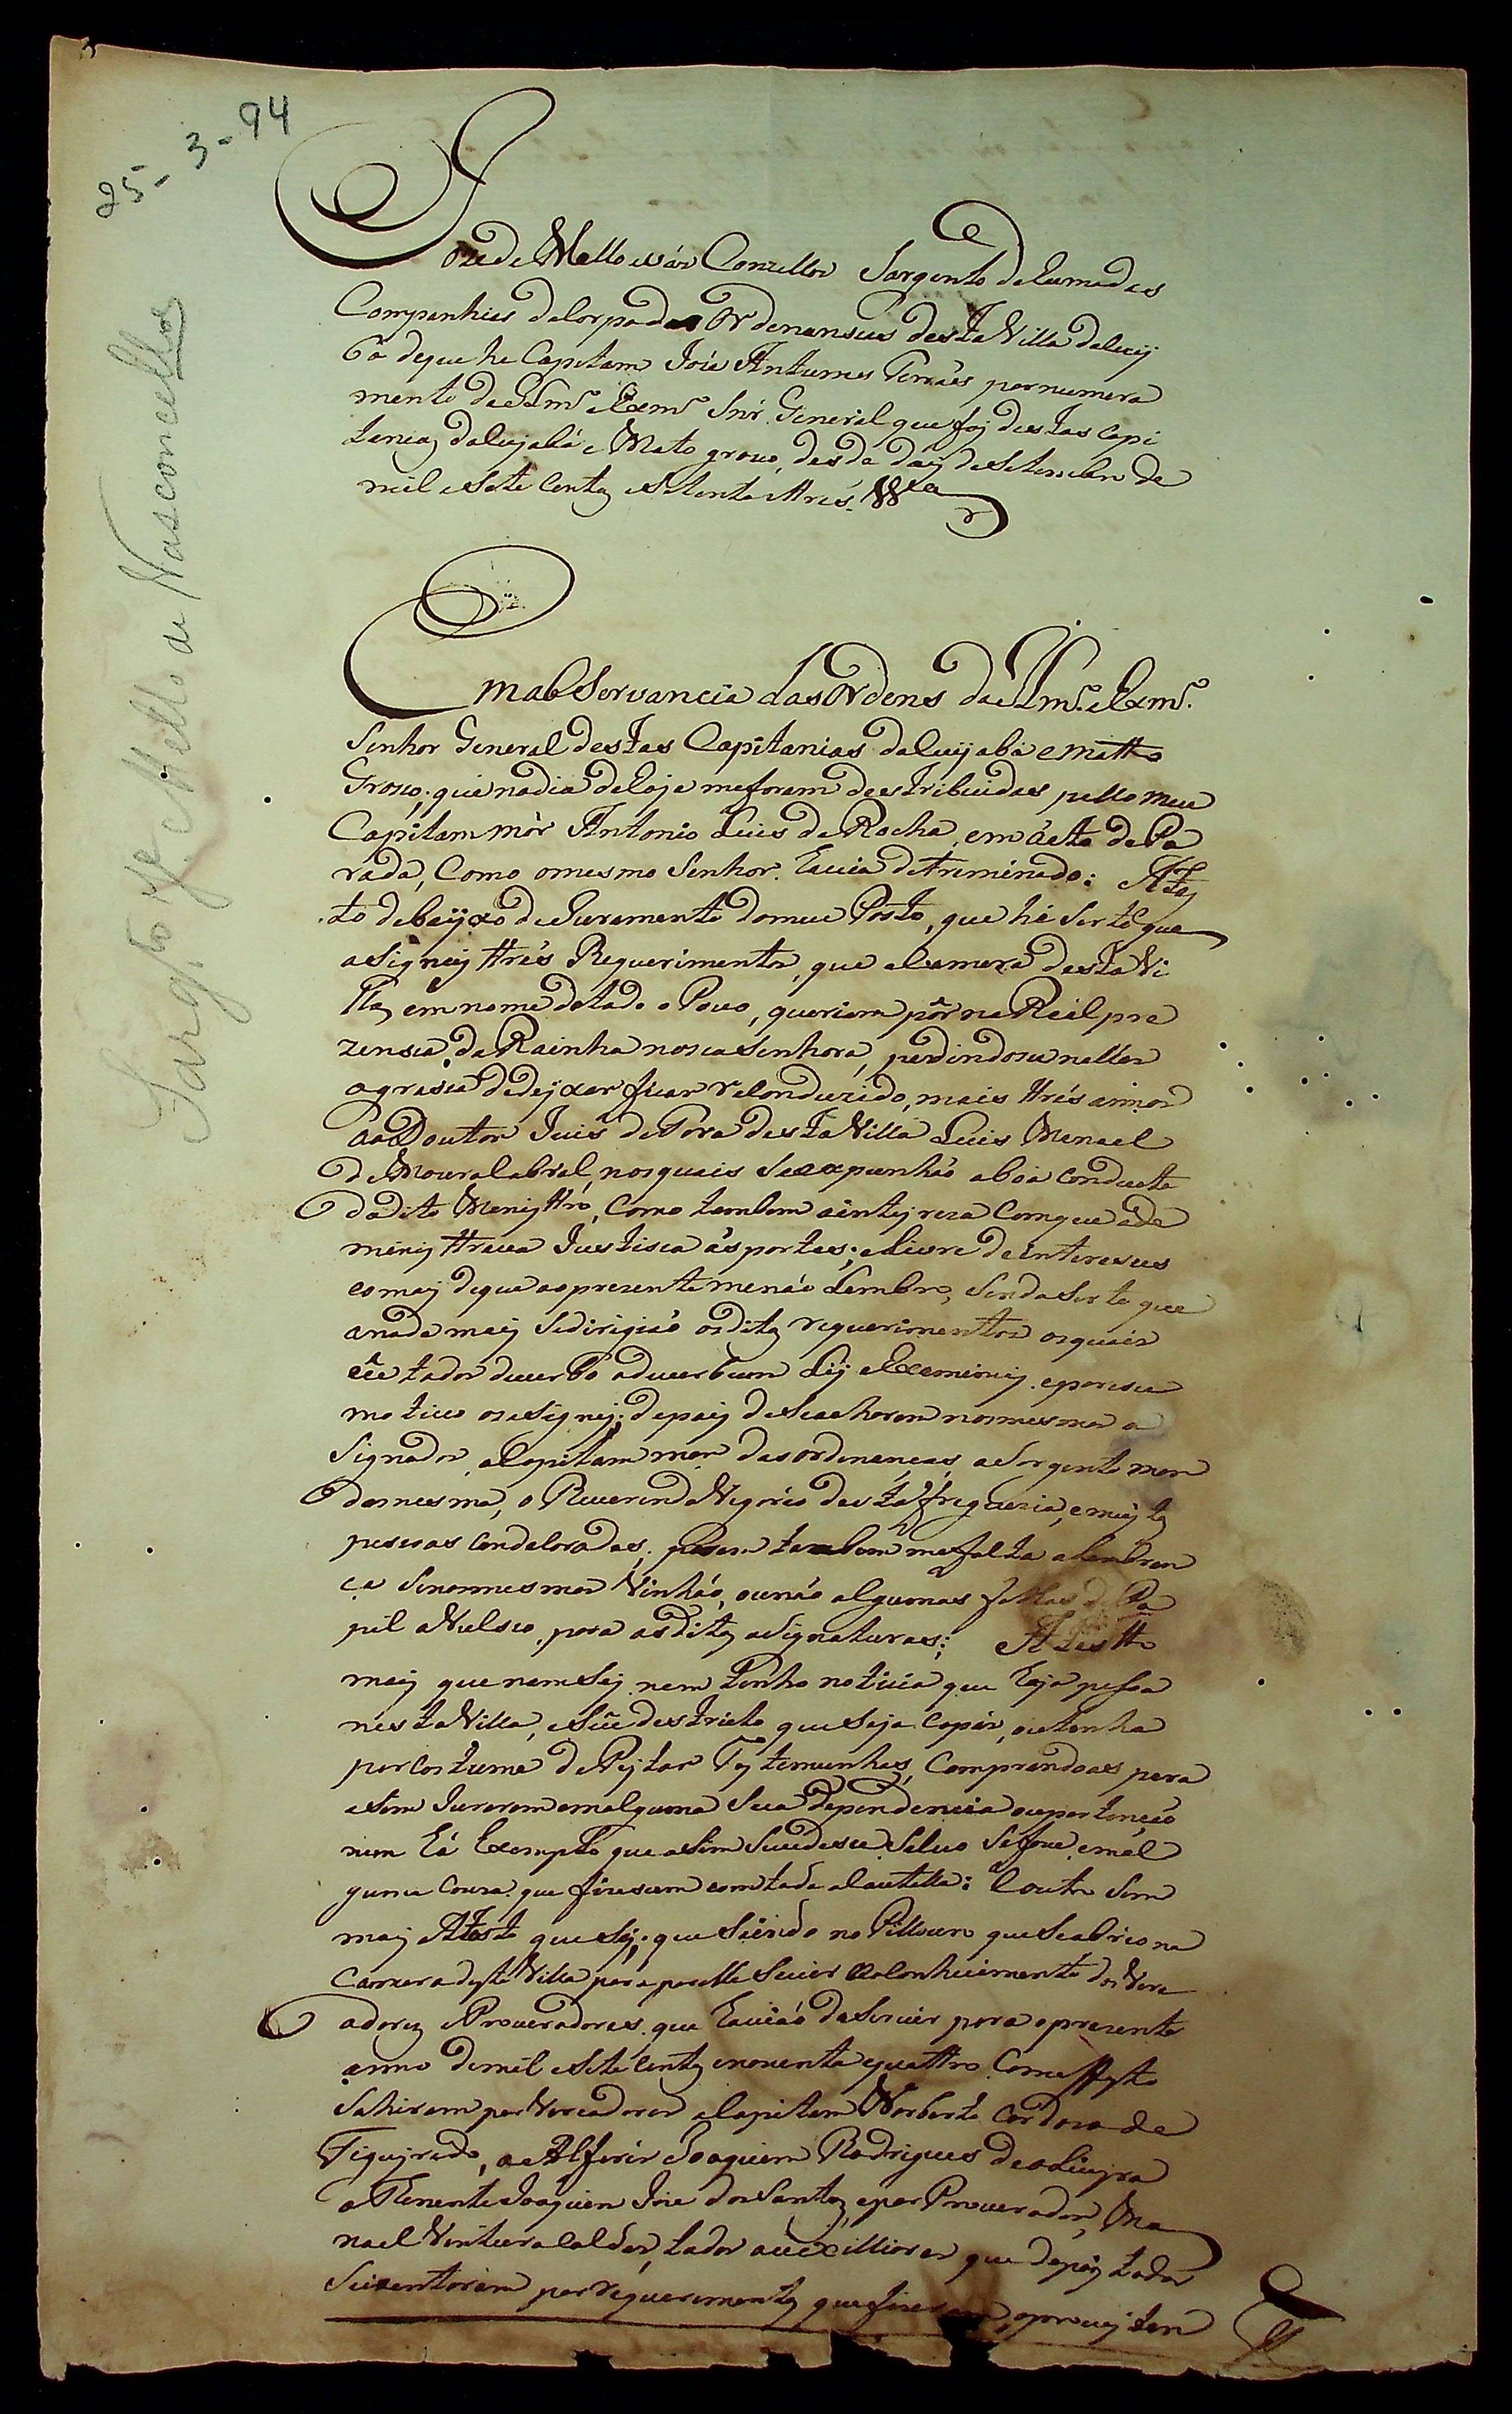 25-3-94
Sarg.to Je Mello de Vasconcellos
Joze de Mello e vas Conzellos Sargento de huma das
Companhias do Corpo das Ordenansas desta Villa do Cuÿ
bá de que he Capitam José Antunes por numera
mento do Ilmo e Exmo Snr. General que foj destas Capi
tanias do Cujabá e Mato groso, desde de Setembro de
mil e sete Centos e setenta e tres. &&a
Em a obServancia das Ordens do Ilmo. e Exmo.
Senhor General destas Capitanias do Cuÿaba e matto
Groso, que no dia de Hoje me foram destribuidas pello meu
Capitam mór Antonio Luis da Rocha, em acto de Pa
rada, Como o mesmo Senhor Havia detreminado: Ates
to debaÿxo do Juramento do meu Posto, que hé Serto que
aSigney trés Requerimentos, que a Camera desta Vi
lla, em nome de todo o Povo, queriam pôr na Real pre
zensia da Rainha nosa Senhora, pedindo se nelles
a grasia de deyxar ficar reConduzido, mais trés annos
ao Doutor Juis de Fora desta Villa Luis Manoel
de Moura Cabral, nos quais Se expunháo a boa conducta
do dito Menistro, Como tambem a inteyreza Com que ade
menistrava Justisa ás partes; e Livre de intereses
e o mais de que ao prezente me náo Lembro, Sendo Serto que
a nada mais Se dirigiáo os ditos requerimentos os quais
eu todos de verbo ad verbum Lÿ e Exeminej, e por ese
motivo os aSigney; depois de Se acharem nos mesmos a
Signados, o Capitam mor das ordenanças, o Sargento mor
das mesma, o Reverendo Vigário desta freguezia, e muytas
pesoas Condecoradas; porem tambem me falta a lembran
ça Se nos mesmos Vinháo, ou náo algumas folhas de Pa
pel aVulso, para as ditas aSignaturas; Atesto
mais que nem Sej, nem tenho noticia que Haja pesoa
nesta Villa, e Seu destricto que Seja Capás, ou tenha
por Costume de Peytar Testemunhas, Comprandoas para
aSim Jurarem em alguma Sua dependencia ou pertenção
nem Há Exemplo que aSim Sucedese Salvo Se fose em al
guma Couza que fizesem com toda a Cautella: E outro Sim
mais Atesto que Sej, que Saindo no Pillouro que Se abrio na
Camera desta Villa para por elle Se vir ao Conhesimento dos Vere
adores e Procuradores que Haviáo de Servir para o prezente
anno de mil e Sete Centos e noventa e quattro. Com effeyto
Sahiram por Vereadores o Capitam Norberto Cardoso de
Figueyredo, o Alferes Joaquim Rodrigues de oLiveyra
o Tenente Joaquim Joze dos Santos, e por Procurador, Ma
noel Ventura Caldas, todos auxilliares que depois todos
Se izentaram por requerimentos que fizeram, aproveytan